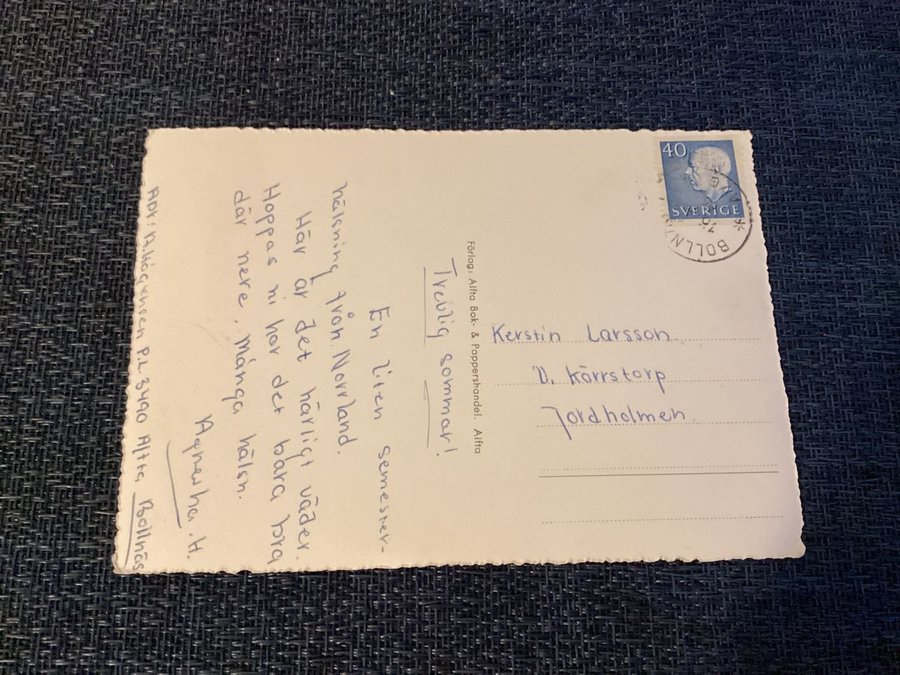 Trevlig sommar!
En liten semester-
hälsning från Norrland.
Här är det härligt väder.
Hoppas ni har det bara bra
där nere, många hälsn.
Agnetha. H.
Adr: Håkansson P.L 3490 Alfta, Bollnäs
Förlag: Alfta Bok- & Pappershandel. Alfta
40
SVERIGE
BOLLNÄS
Kerstin Larsson
V. Kärrstorp
Jordholmen